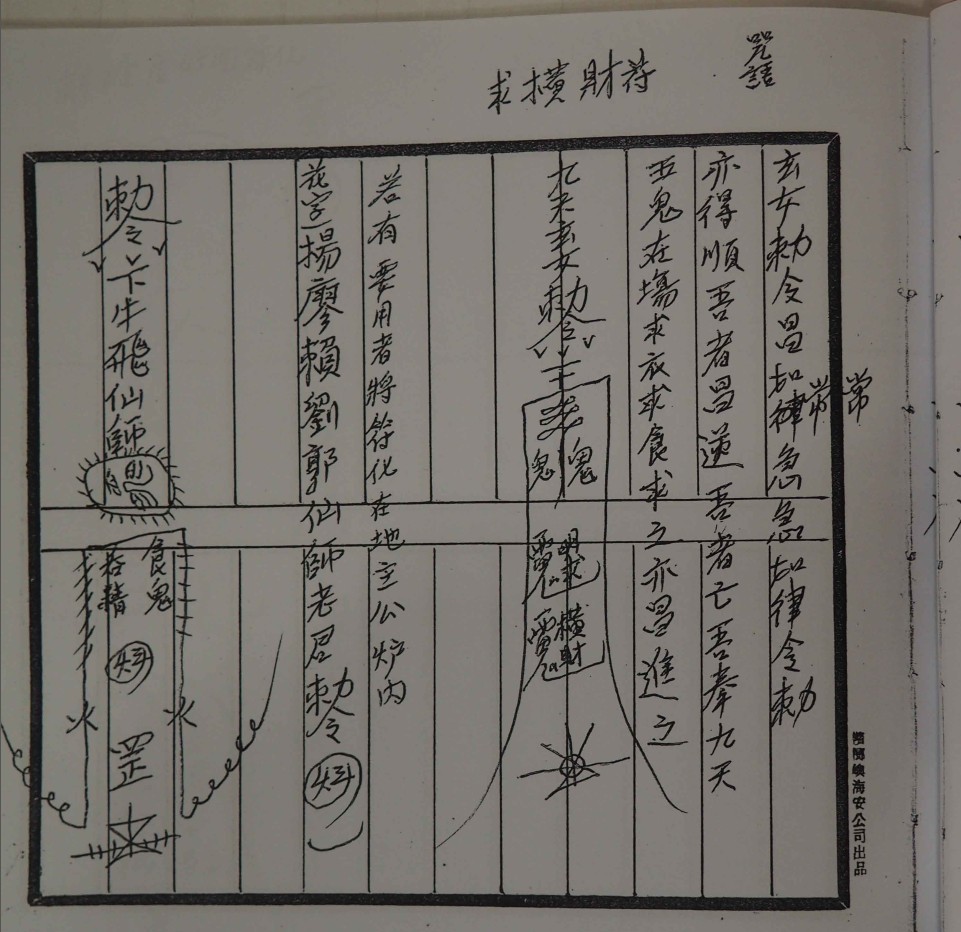 咒語
求橫財符
五鬼在塲求衣求食求之亦昌進之
亦得順吾者昌逆吾者亡吾奉九天
玄女勅令昌如律急急如律令勅
常常
九天玄女勅令
鬼鬼
橫財
若有要用者將符化在地主公炉内
花字楊廖賴劉郭仙師老君勅令
勅令
牛飛仙師
食鬼
吞精
罡
公司出品